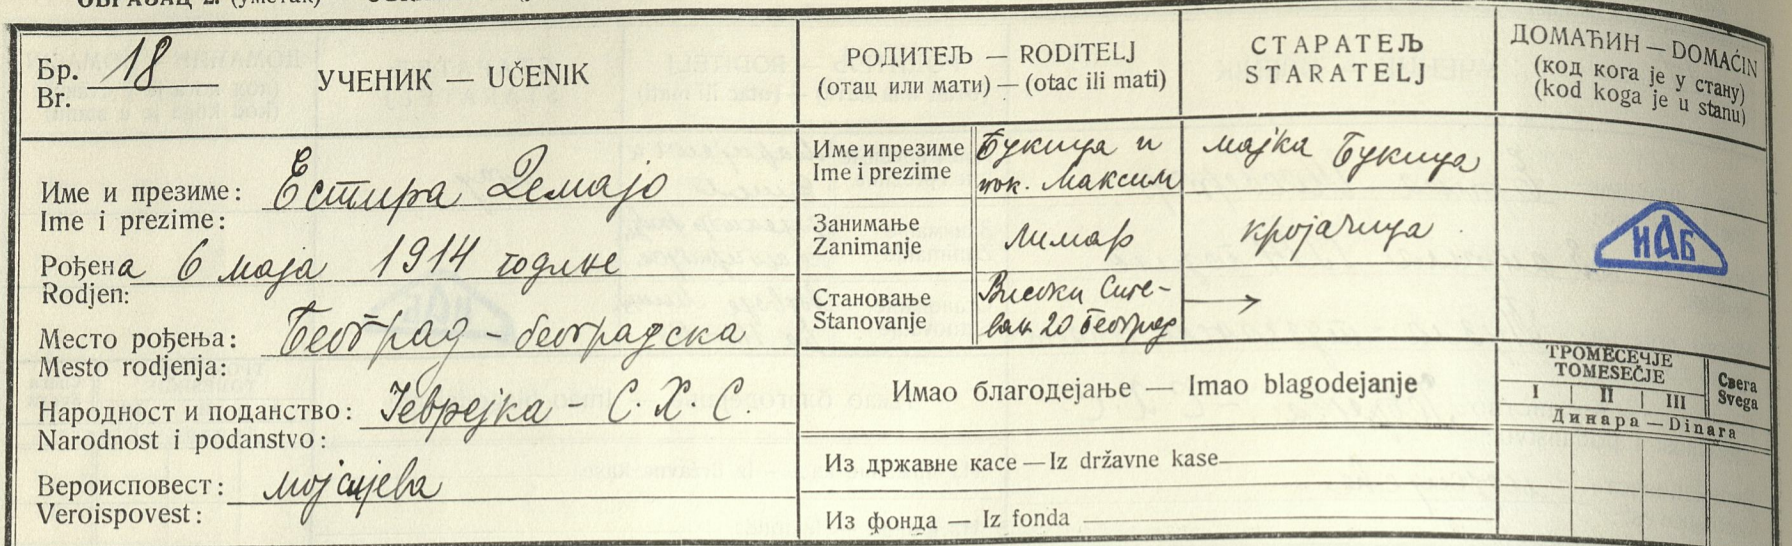 ОБРАЗАЦ 2. (уметак)
Бр. 18
Br.
УЧЕНИК — UČENIK
РОДИТЕЉ — RODITELJ
(отац или мати) — (otac ili mati)
СТАРАТЕЉ
STARATELJ
ДОМАЋИН — DOMAĆIN
(код кога је у стану)
(kod koga je u stanu)
Име и презиме: Естира Демајо
Ime i prezime:
Рођена 6 маја 1914 године
Rodjen:
Место рођења: Београд - београдска
Mesto rodjenja:
Народност и поданство: Јеврејка - С. Х. С.
Narodnost i podanstvo:
Вероисповест: мојсијева
Veroispovest:
Име и презиме
Ime i prezime
Букица и
пок. Максим
мајка Букица
Занимање
Zanimanje
лимар
кројачица
Становање
Stanovanje
Високи Сте-
ван 20 Београд
ИАБ
Имао благодејање — Imao blagodejanje
ТРОМЕСЕЧЈЕ
TOMESEČJE
I II III
Свега
Svega
Динара — Dinara
Из државне касе — Iz državne kase
Из фонда — Iz fonda